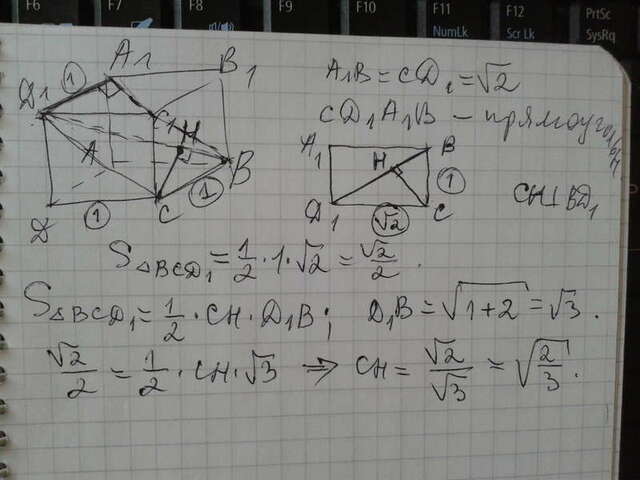 F6 F7 F8 F9 F10 F11 F12 PrtSc
NumLk Scr Lk SysRq
A₁ B₁
D₁ ① C₁ H
A B
D ① C ①
A₁B = CD₁ = √2
CD₁A₁B – прямоуг.
A₁ B
H ①
D₁ √2 C
CH⊥BD₁
S△BCD₁ = 1/2 · 1 · √2 = √2/2 .
S△BCD₁ = 1/2 · CH · D₁B ; D₁B = √(1+2) = √3 .
√2/2 = 1/2 · CH · √3 ⇒ CH = √2/√3 = √(2/3) .